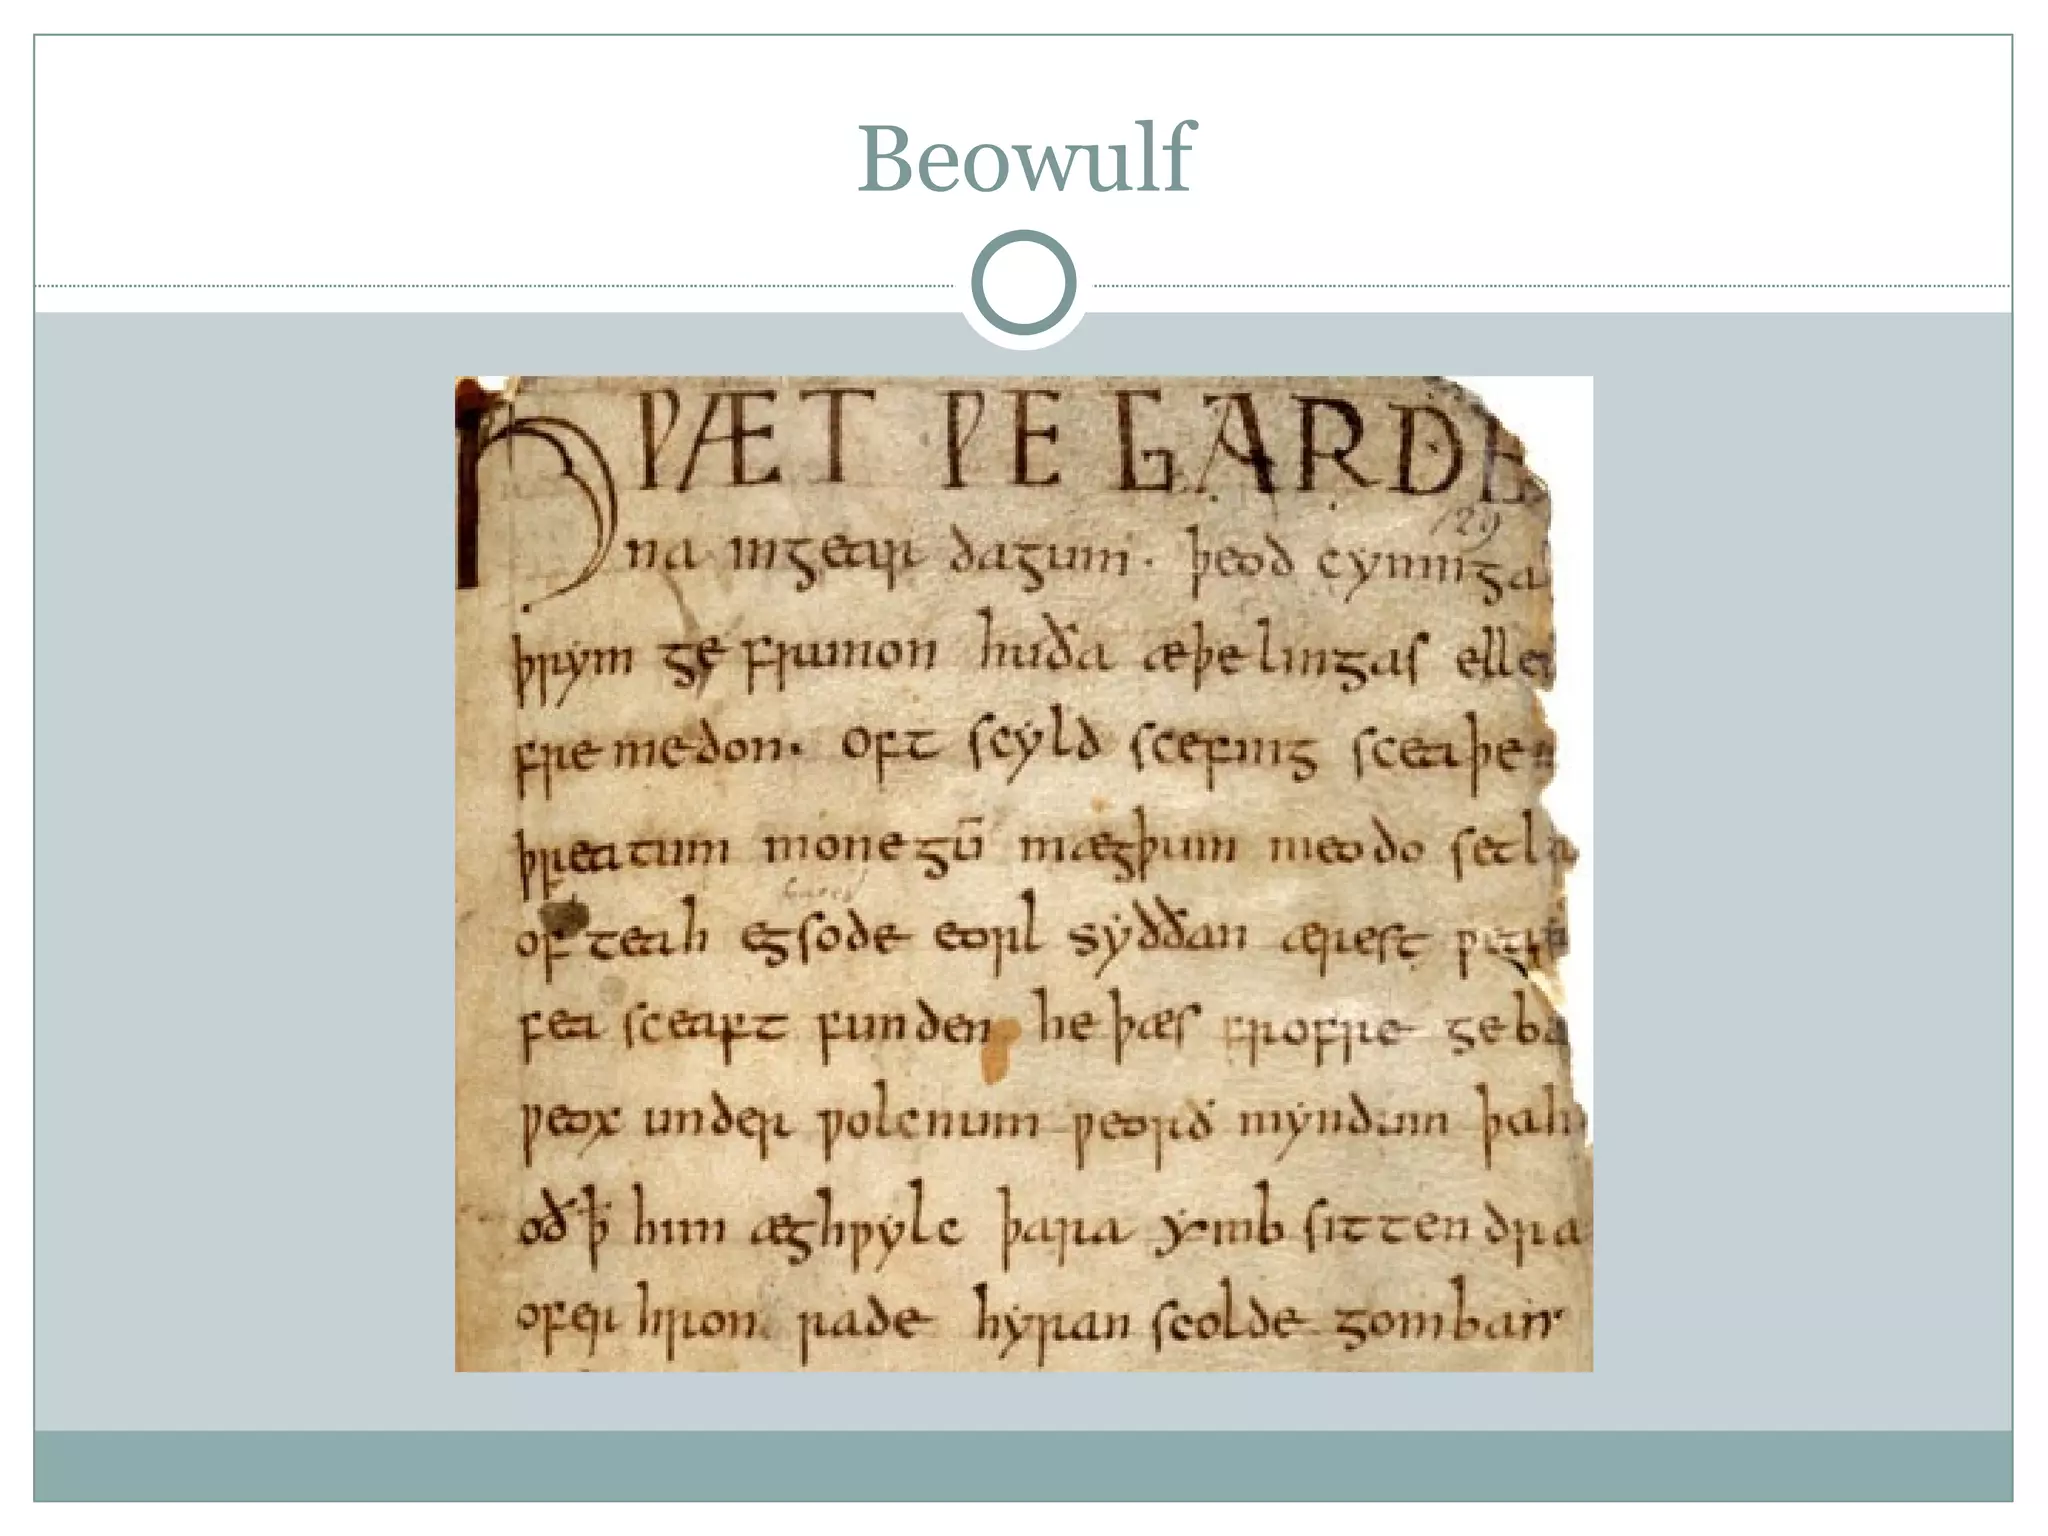 Beowulf
HǷÆT ǷE GARDE
129
na ingear dagum · þeod cyninga
þrym ge frunon huða æþelingas elle
fremedon. Oft scyld scefing sceaþe
þreatum monegū mægþum meodo setla
of teah egsode eorl syððan ærest ƿear
fea sceaft funden he þæs frofre geba
ƿeox under ƿolcnum ƿeorð myndum þah
oð ꝥ him æghƿylc þara ymb sittendra
ofer hron rade hyran scolde gomban